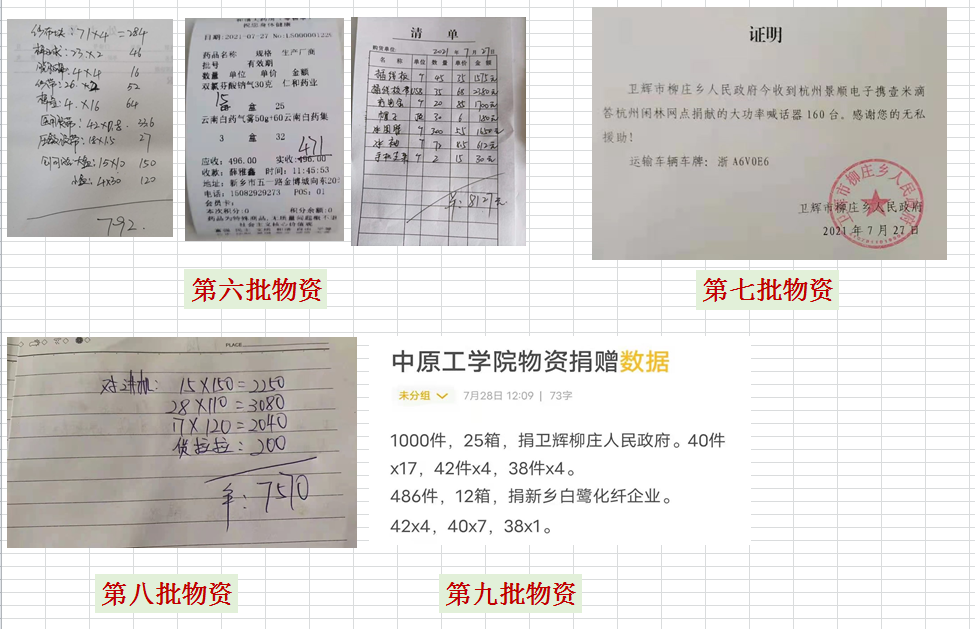 纱布块：71×4=284
23×2 46
4×4 16
26×2 52
4×16 64
42×8 336
18×1.5 27
15×10 150
4×30 120
792.
日期:2021-07-27
药品名称 规格 生产厂商
批号 有效期
数量 单位 单价 金额
双氯芬酸钠气30克 仁和药业
15 盒 25
云南白药气雾50g+60云南白药集
3 盒 32
471
应收: 496.00 实收:496.00
收款: 薛雅鑫 时间: 11:45:53
地址: 新乡市五一路金博城向东20
电话: 15082929273 POS: 01
会员卡:
本次积分:0 积分余额:0
药品为特殊商品,无质量问题概不退
清单
购货单位 2021年7月27日
名称 单位 数量 单价 金额
插线板 个 45 35 1575元
35 68 2380元
个 20 85 1700元
30 6 180元
个 300 5.5 1650元
个 2 15 30元
¥: 8127元
证明
卫辉市柳庄乡人民政府今收到杭州景顺电子携壹米滴
答杭州闲林网点捐献的大功率喊话器 160 台。感谢您的无私
援助！
运输车辆车牌：浙 A6V0E6
卫辉市柳庄乡人民政府
2021 年 7 月 27 日
第六批物资
第七批物资
PLACE
对讲机: 15×150=2250
28×110=3080
17×120=2040
货拉拉: 200
¥: 7570
中原工学院物资捐赠数据
未分组 7月28日 12:09 | 73字
1000件，25箱，捐卫辉柳庄人民政府。40件
x17，42件x4，38件x4。
486件，12箱，捐新乡白鹭化纤企业。
42x4，40x7，38x1。
第八批物资
第九批物资